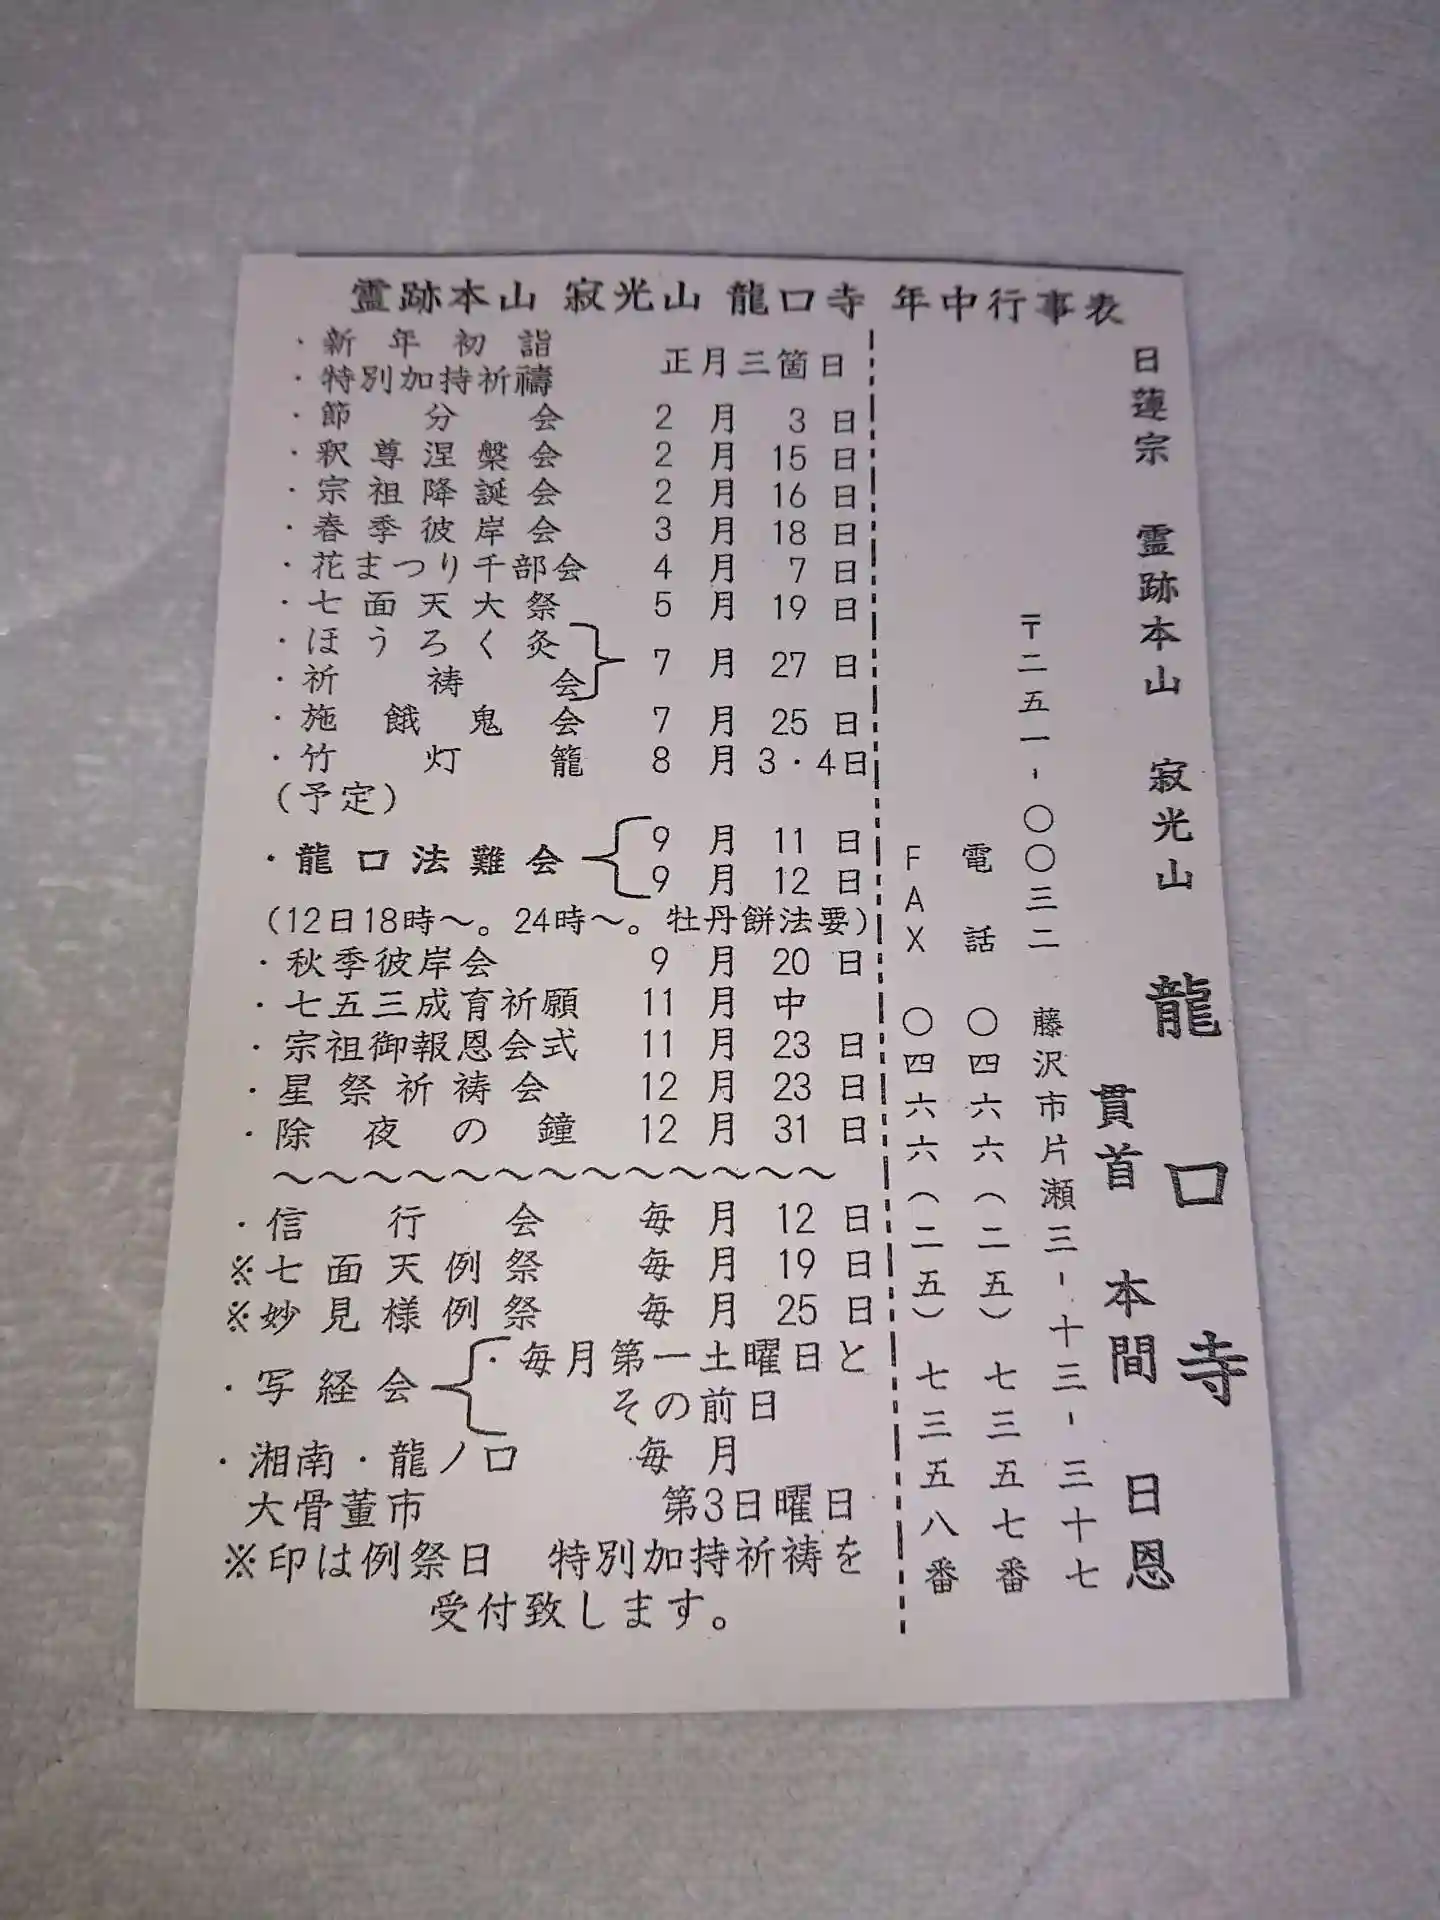 霊跡本山 寂光山 龍口寺 年中行事表
・新年初詣
・特別加持祈禱 正月三箇日
・節分会 2月3日
・釈尊涅槃会 2月15日
・宗祖降誕会 2月16日
・春季彼岸会 3月18日
・花まつり千部会 4月7日
・七面天大祭 5月19日
・ほうろく灸
・祈祷会 7月27日
・施餓鬼会 7月25日
・竹灯籠 8月3・4日
(予定)
・龍口法難会 9月11日
9月12日
(12日18時〜。24時〜。牡丹餅法要)
・秋季彼岸会 9月20日
・七五三成育祈願 11月中
・宗祖御報恩会式 11月23日
・星祭祈祷会 12月23日
・除夜の鐘 12月31日
〜〜〜〜〜〜〜〜〜〜〜〜〜
・信行会 毎月12日
※七面天例祭 毎月19日
※妙見様例祭 毎月25日
・写経会 ・毎月第一土曜日と
その前日
・湘南・龍ノ口 毎月
大骨董市 第3日曜日
※印は例祭日 特別加持祈祷を
受付致します。
日蓮宗 霊跡本山 寂光山 龍口寺
貫首 本間 日恩
〒二五一-〇〇三二 藤沢市片瀬三-十三-三十七
電話 〇四六六(二五)七三五七番
FAX 〇四六六(二五)七三五八番